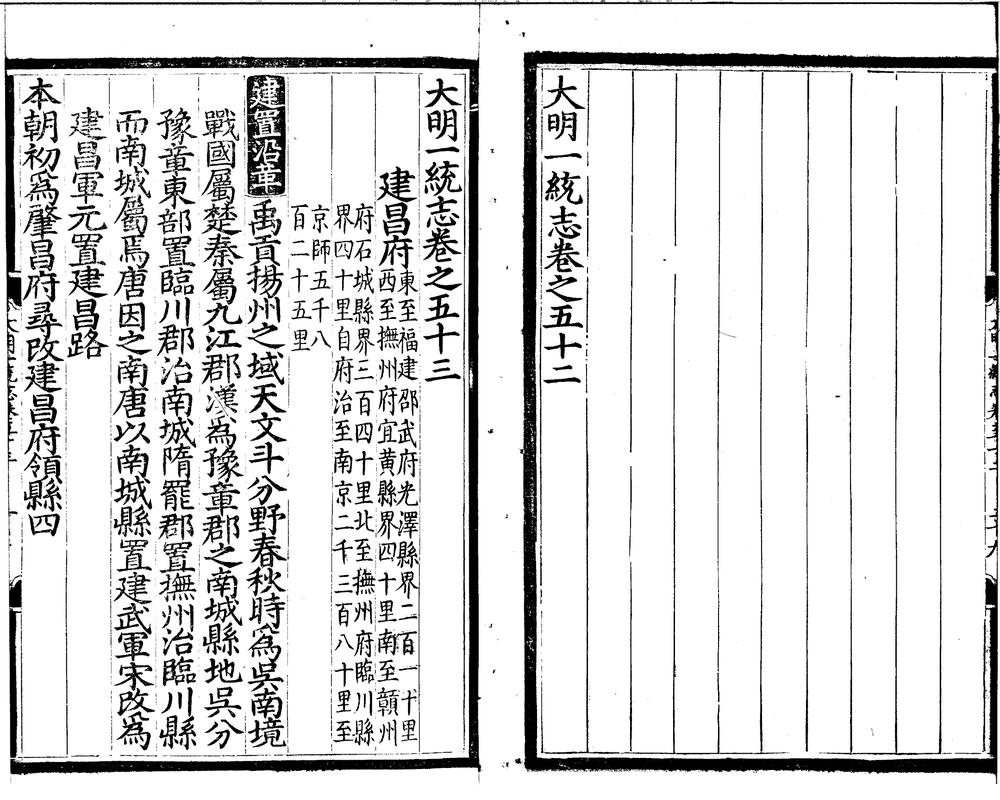 大明一統志卷之五十二
大明一統志卷之五十三
建昌府
東至福建邵武府光澤縣界二百一十里
西至撫州府宜黄縣界四十里南至贛州
府石城縣界三百四十里北至撫州府臨川縣
界四十里自府治至南京二千三百八十里至
京師五千八
百二十五里
建置沿革 禹貢揚州之域天文斗分野春秋時爲吳南境
戰國屬楚秦屬九江郡漢爲豫章郡之南城縣地吳分
豫章東部置臨川郡治南城隋罷郡置撫州治臨川縣
而南城屬焉唐因之南唐以南城縣置建武軍宋改爲
建昌軍元置建昌路
本朝初爲肇昌府尋改建昌府領縣四